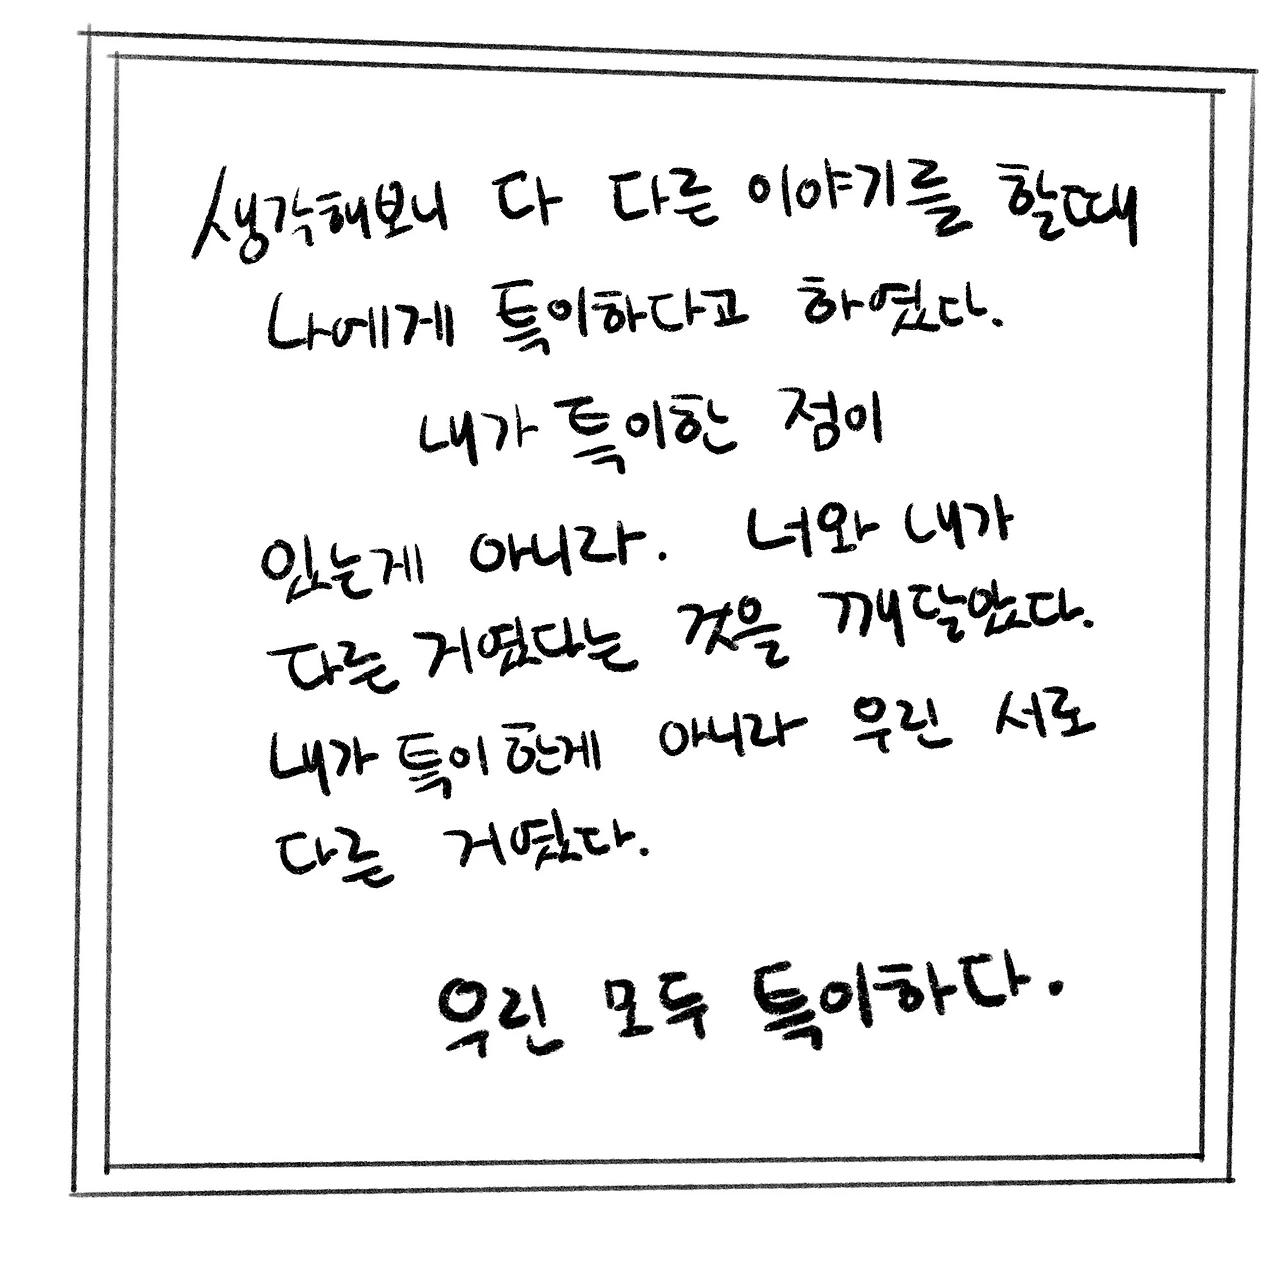 생각해보니 다 다른 이야기를 할때
나에게 특이하다고 하였다.
내가 특이한 점이
있는게 아니라. 너와 내가
다른거였다는 것을 깨달았다.
내가 특이한게 아니라 우린 서로
다른 거였다.
우린 모두 특이하다.